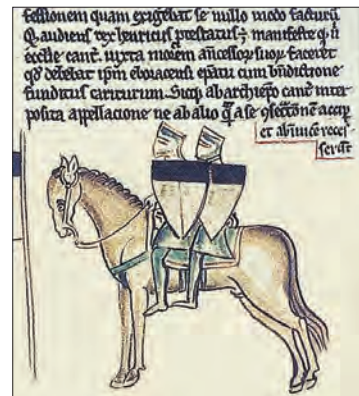 fessionem quam exigebat se nullo modo facturū
Q audiens rex henricus ptestatus ÷ manifeste qͥ n̄
ecclie cant. iuxta morem ancessoꝝ suoꝝ faceret
qđ debebat ip̄m eboracensi ep̄atu cum bn̄dictione
funditus cariturum. Sicqꝫ ab archiep̄o cant̄ inter
posita appellacione ne ab alio q̄ a se ꝯsec̄one accip̄
et abinuicē recesſ
serāt